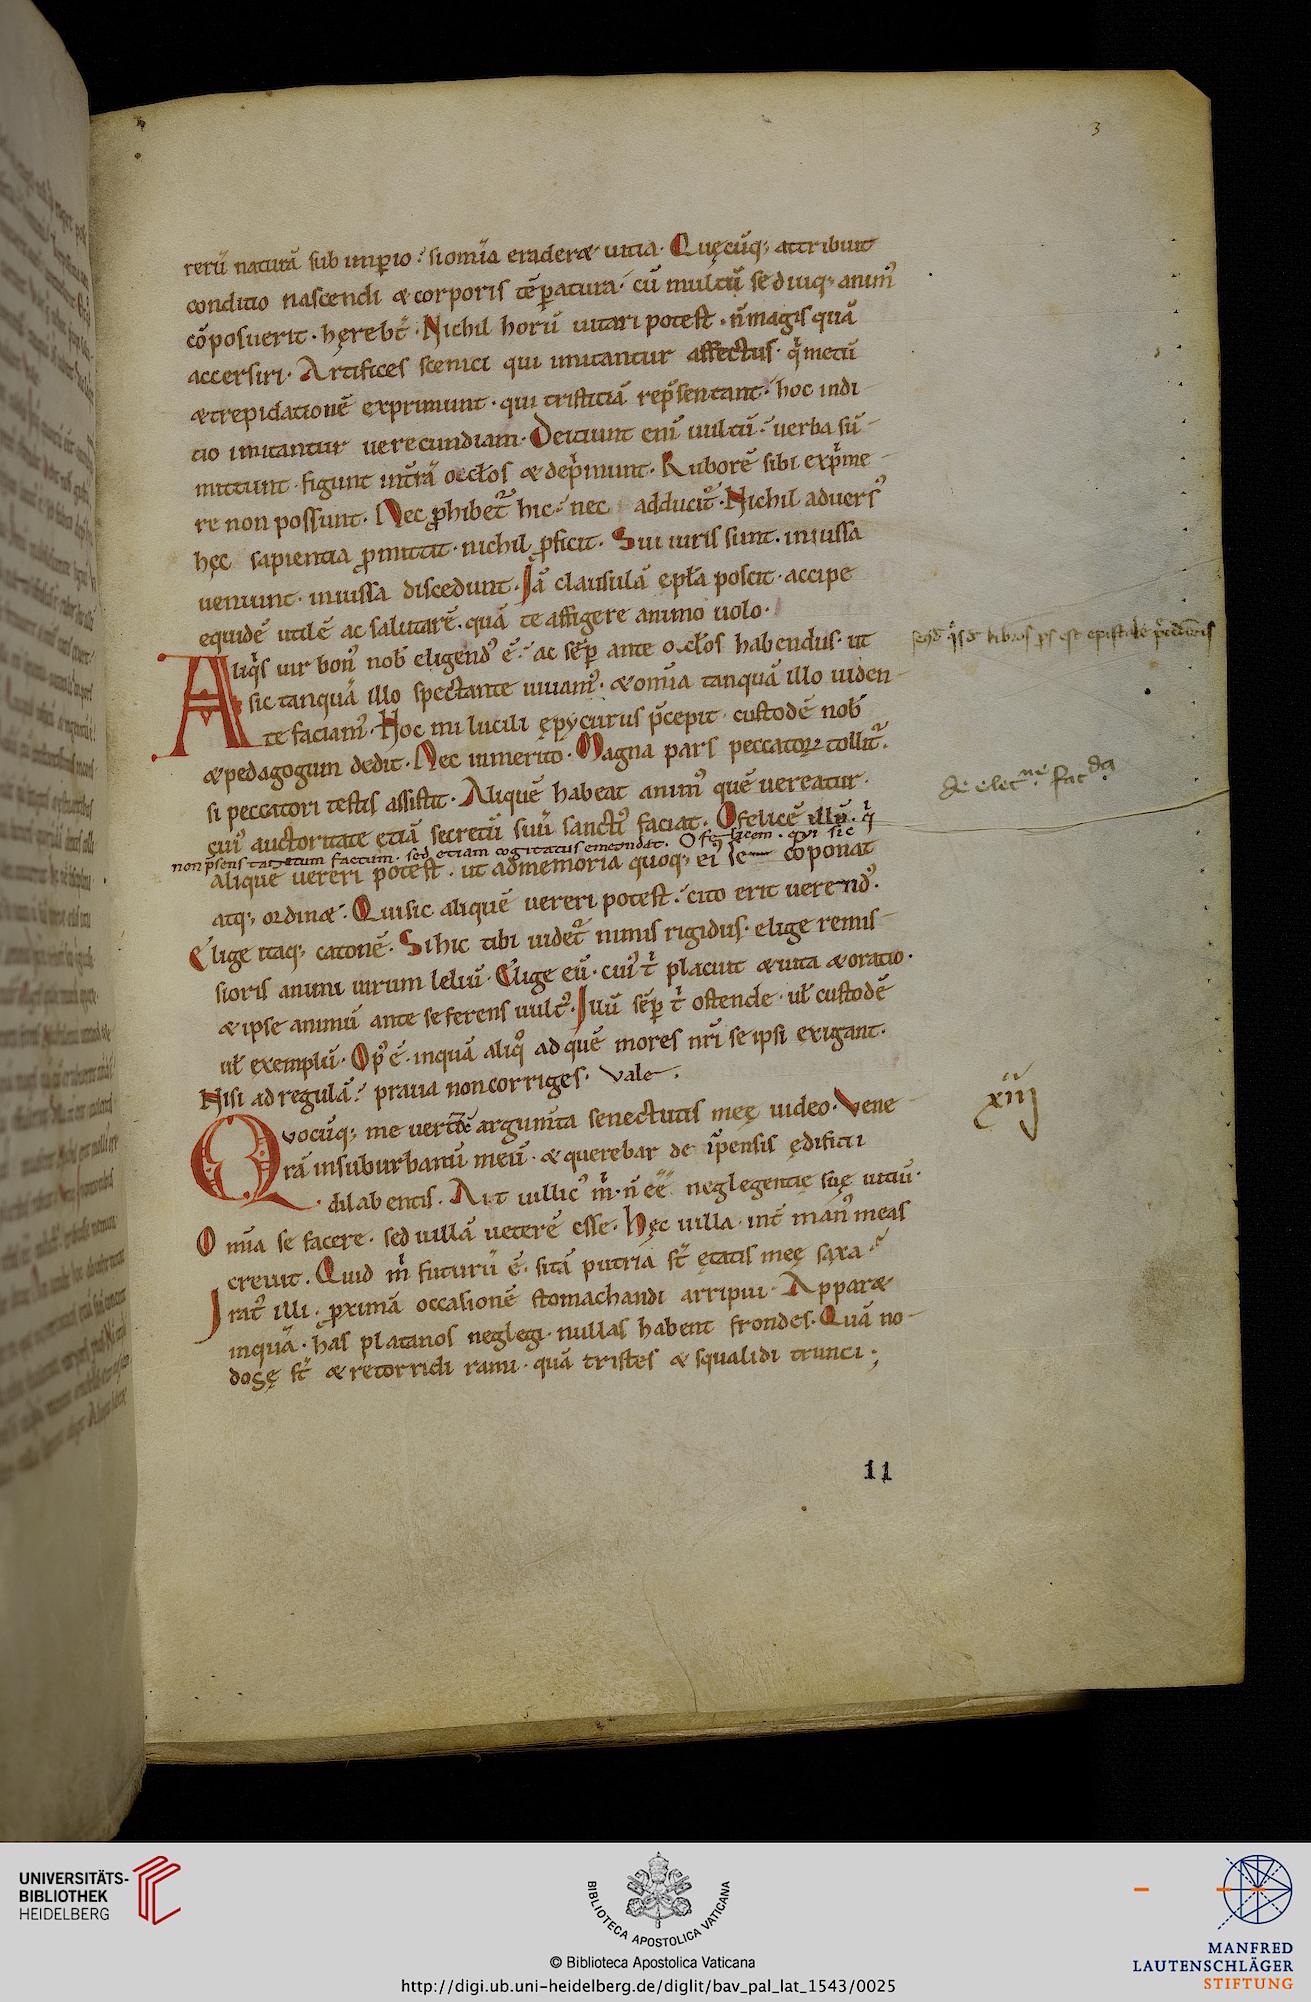 3
rerū naturā sub imꝑio. siom̄ia eraderæ uitia. Quęcūq; attribuit
conditio nascendi & corporis tēꝑatura. cū multū sediuq; anim᷒
cōposuerit. hęrebt̄. Nichil horū uitari potest. n̄ magis quā
accersiri. Artifices scenici qui imitantur affectus. q̇ metū
& trepidationē exprimunt. qui tristiciā rep̄sentant. hoc indi
tio imitantur uerecundiam. Deiciunt eni uultū. uerba sū
mittunt. figunt int̄rā occl̄os & deṗmunt. Ruborē sibi exṗme
re non possunt. Nec ꝓhibet᷑ hic. nec adducit᷑. Nichil aduers᷒
hęc sapientia ꝓmittit. nichil ꝓficit. Sui iuris sunt. iniussa
ueniunt. iniussa discedunt. Jā clausulā ep̄la poscit. accipe
equidē utilē ac salutarē. quā te affigere animo uolo.
Aliq̇s uir bon᷒ nob̄ eligend᷒ ē. ac sēꝑ ante occl̄os habendus. ut
sic tanquā illo spectante uiuam᷒. & om̄ia tanquā illo uiden
te faciam᷒. Hoc mi lucili ępycurus p̄cepit. custodē nob̄
& pedagogum dedit. Nec inmerito. Magna pars peccatoꝝ tollit᷑.
si peccatori testis assistit. Aliquē habeat anim᷒ quē uereatur.
cui᷒ auctoritate etiā secretū suū sancti᷒ faciat. O felicē illū. q̇
non p̄sens tantum factum. sed etiam cogitatus emendat. O felicem. qui sic
aliquē uereri potest. ut ad memoria quoq; ei᷒ se cōponat
atq; ordin&. Qui sic aliquē uereri potest. cito erit uerend᷒.
Elige itaq; catonē. Si hic tibi uidet᷑ nimis rigidus. elige remis
sioris animi uirum leliū. Elige eū. cui᷒ t̄ placuit & uita & oratio.
& ipse animū ante se ferens uult᷒. Illū sēꝑ t̄ ostende. ul̄ custodē
ul̄ exemplū. Op᷒ ē. inquā aliq̊ ad quē mores nr̄i se ipsi exigant.
Nisi ad regulā. praua non corriges. Vale.
Quocūq; me uert̄o argum̄ta senectutis meę uideo. Vene
rā in suburbanū meū. & querebar de īpensis ędificii
dilabentis. Ait uillic᷒ m̄. n̄ ēē neglegentię suę uitiū.
Om̄ia se facere. sed uillā ueterē esse. Hęc uilla. int̄ man᷒ meas
creuit. Quid m̄ futurū ē. si tā putria st̄ ętatis meę saxa.
Jrat᷒ illi. ꝓximā occasionē stomachandi arripui. Apparæ
inquā. has platanos neglegi. nullas habent frondes. Quā no
dosę st̄ & retorridi rami. quā tristes & squalidi trunci;
xiij
11
UNIVERSITÄTS-
BIBLIOTHEK
HEIDELBERG
BIBLIOTECA APOSTOLICA VATICANA
© Biblioteca Apostolica Vaticana
http://digi.ub.uni-heidelberg.de/diglit/bav_pal_lat_1543/0025
MANFRED
LAUTENSCHLÄGER
STIFTUNG